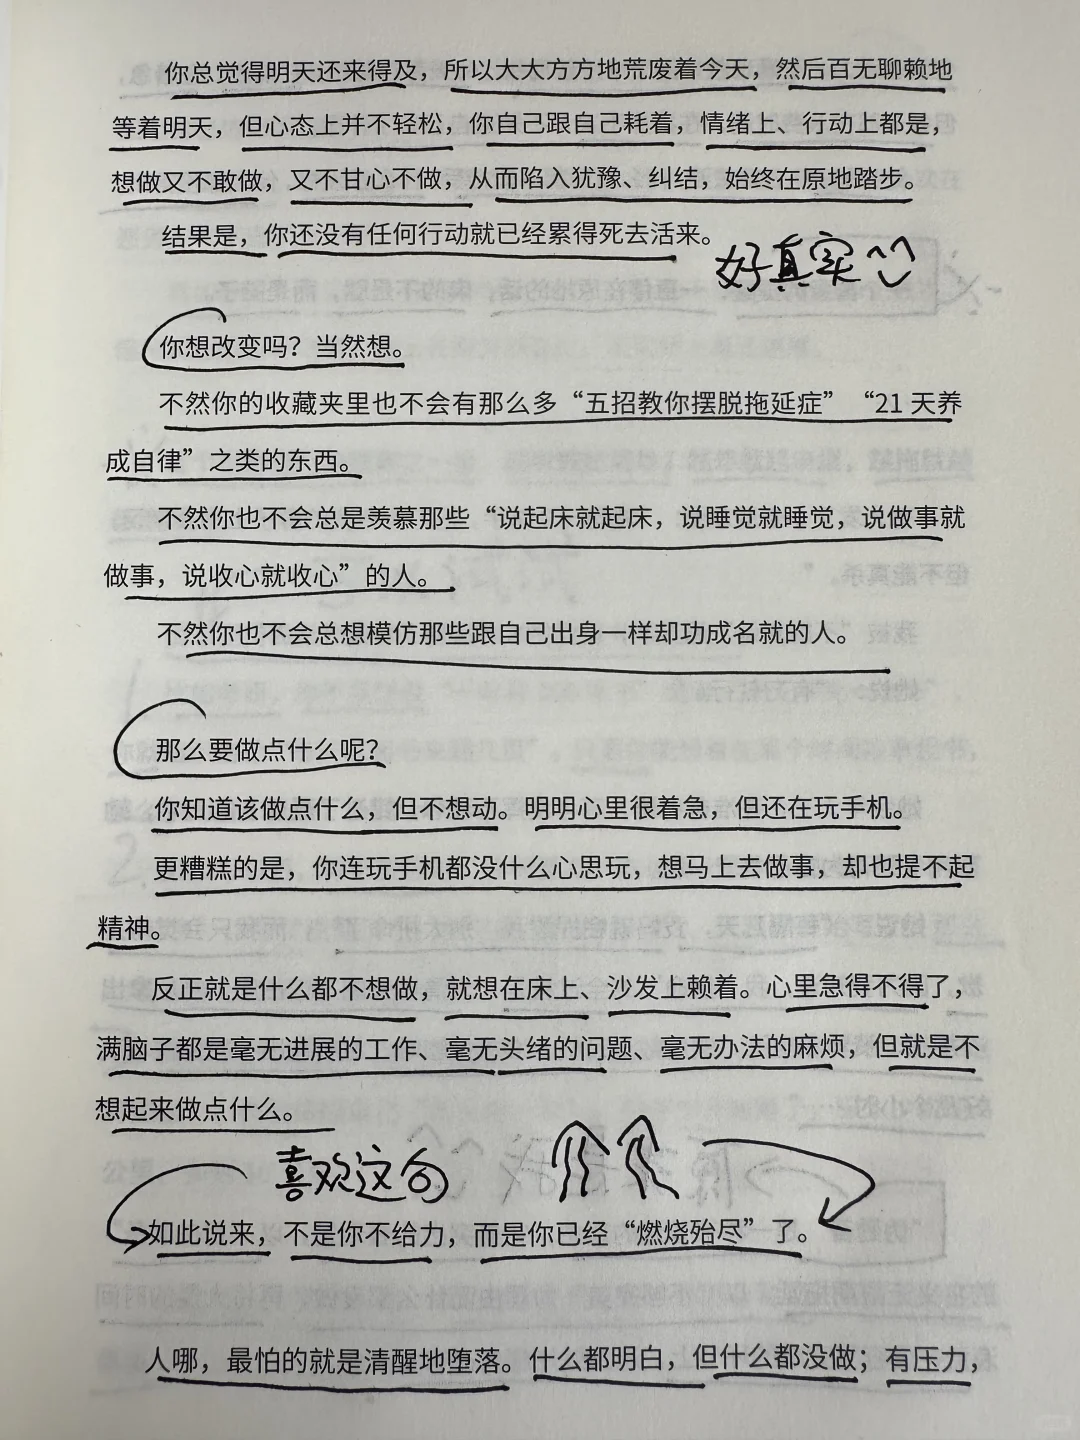 你总觉得明天还来得及，所以大大方方地荒废着今天，然后百无聊赖地
等着明天，但心态上并不轻松，你自己跟自己耗着，情绪上、行动上都是，
想做又不敢做，又不甘心不做，从而陷入犹豫、纠结，始终在原地踏步。
结果是，你还没有任何行动就已经累得死去活来。
好真实
你想改变吗？当然想。
不然你的收藏夹里也不会有那么多“五招教你摆脱拖延症”“21 天养
成自律”之类的东西。
不然你也不会总是羡慕那些“说起床就起床，说睡觉就睡觉，说做事就
做事，说收心就收心”的人。
不然你也不会总想模仿那些跟自己出身一样却功成名就的人。
那么要做点什么呢？
你知道该做点什么，但不想动。明明心里很着急，但还在玩手机。
更糟糕的是，你连玩手机都没什么心思玩，想马上去做事，却也提不起
精神。
反正就是什么都不想做，就想在床上、沙发上赖着。心里急得不得了，
满脑子都是毫无进展的工作、毫无头绪的问题、毫无办法的麻烦，但就是不
想起来做点什么。
喜欢这句
如此说来，不是你不给力，而是你已经“燃烧殆尽”了。
人哪，最怕的就是清醒地堕落。什么都明白，但什么都没做；有压力，